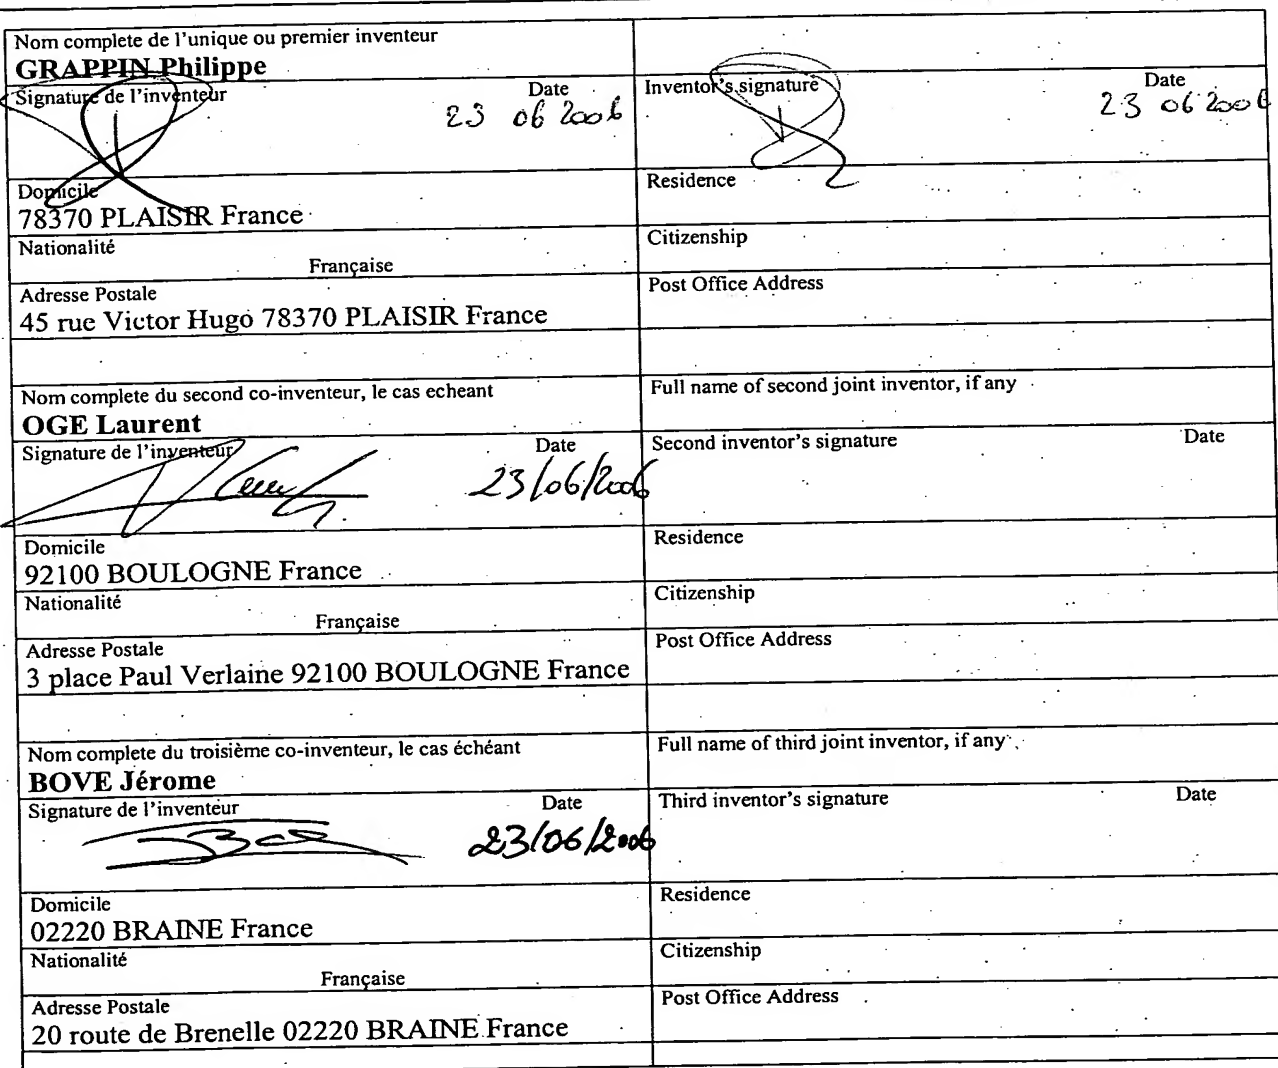 Nom complete de l'unique ou premier inventeur
GRAPPIN Philippe
Signature de l'inventeur Date
23 06 2006
Inventor's signature Date
23 06 2006
Domicile
78370 PLAISIR France
Residence
Nationalité
Française
Citizenship
Adresse Postale
45 rue Victor Hugo 78370 PLAISIR France
Post Office Address
Nom complete du second co-inventeur, le cas echeant
OGE Laurent
Full name of second joint inventor, if any
Signature de l'inventeur Date
23/06/2006
Second inventor's signature Date
Domicile
92100 BOULOGNE France
Residence
Nationalité
Française
Citizenship
Adresse Postale
3 place Paul Verlaine 92100 BOULOGNE France
Post Office Address
Nom complete du troisième co-inventeur, le cas échéant
BOVE Jérome
Full name of third joint inventor, if any
Signature de l'inventeur Date
23/06/2006
Third inventor's signature Date
Domicile
02220 BRAINE France
Residence
Nationalité
Française
Citizenship
Adresse Postale
20 route de Brenelle 02220 BRAINE France
Post Office Address